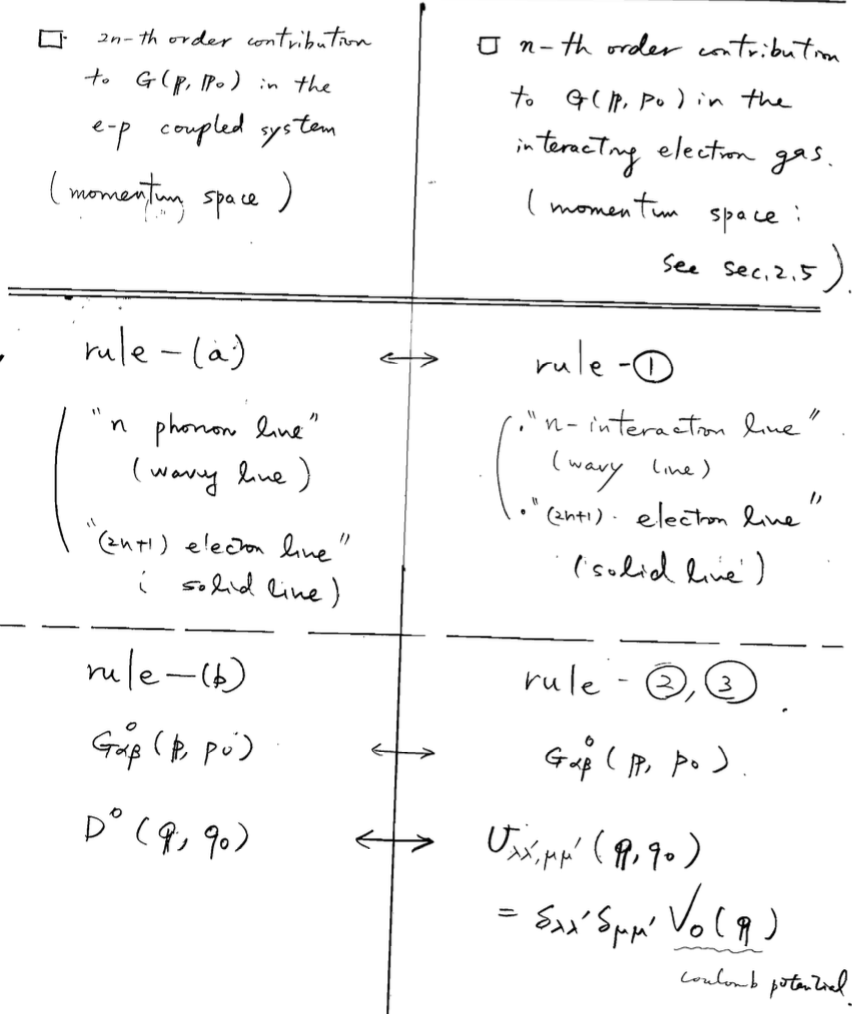 □ 2n-th order contribution
to G(p, p₀) in the
e-p coupled system
(momentum space)
□ n-th order contribution
to G(p, p₀) in the
interacting electron gas.
(momentum space:
see sec. 2.5).
rule-(a) ↔ rule-①
"n phonon line"
(wavy line)
"(2n+1) electron line"
(solid line)
"n-interaction line"
(wavy line)
"(2n+1) electron line"
(solid line)
rule-(b) rule-②,③.
G⁰αβ(p, p₀) ↔ G⁰αβ(p, p₀).
D⁰(q, q₀) ↔ Uλλ',μμ'(q, q₀)
= δλλ' δμμ' V₀(q)
coulomb potential.